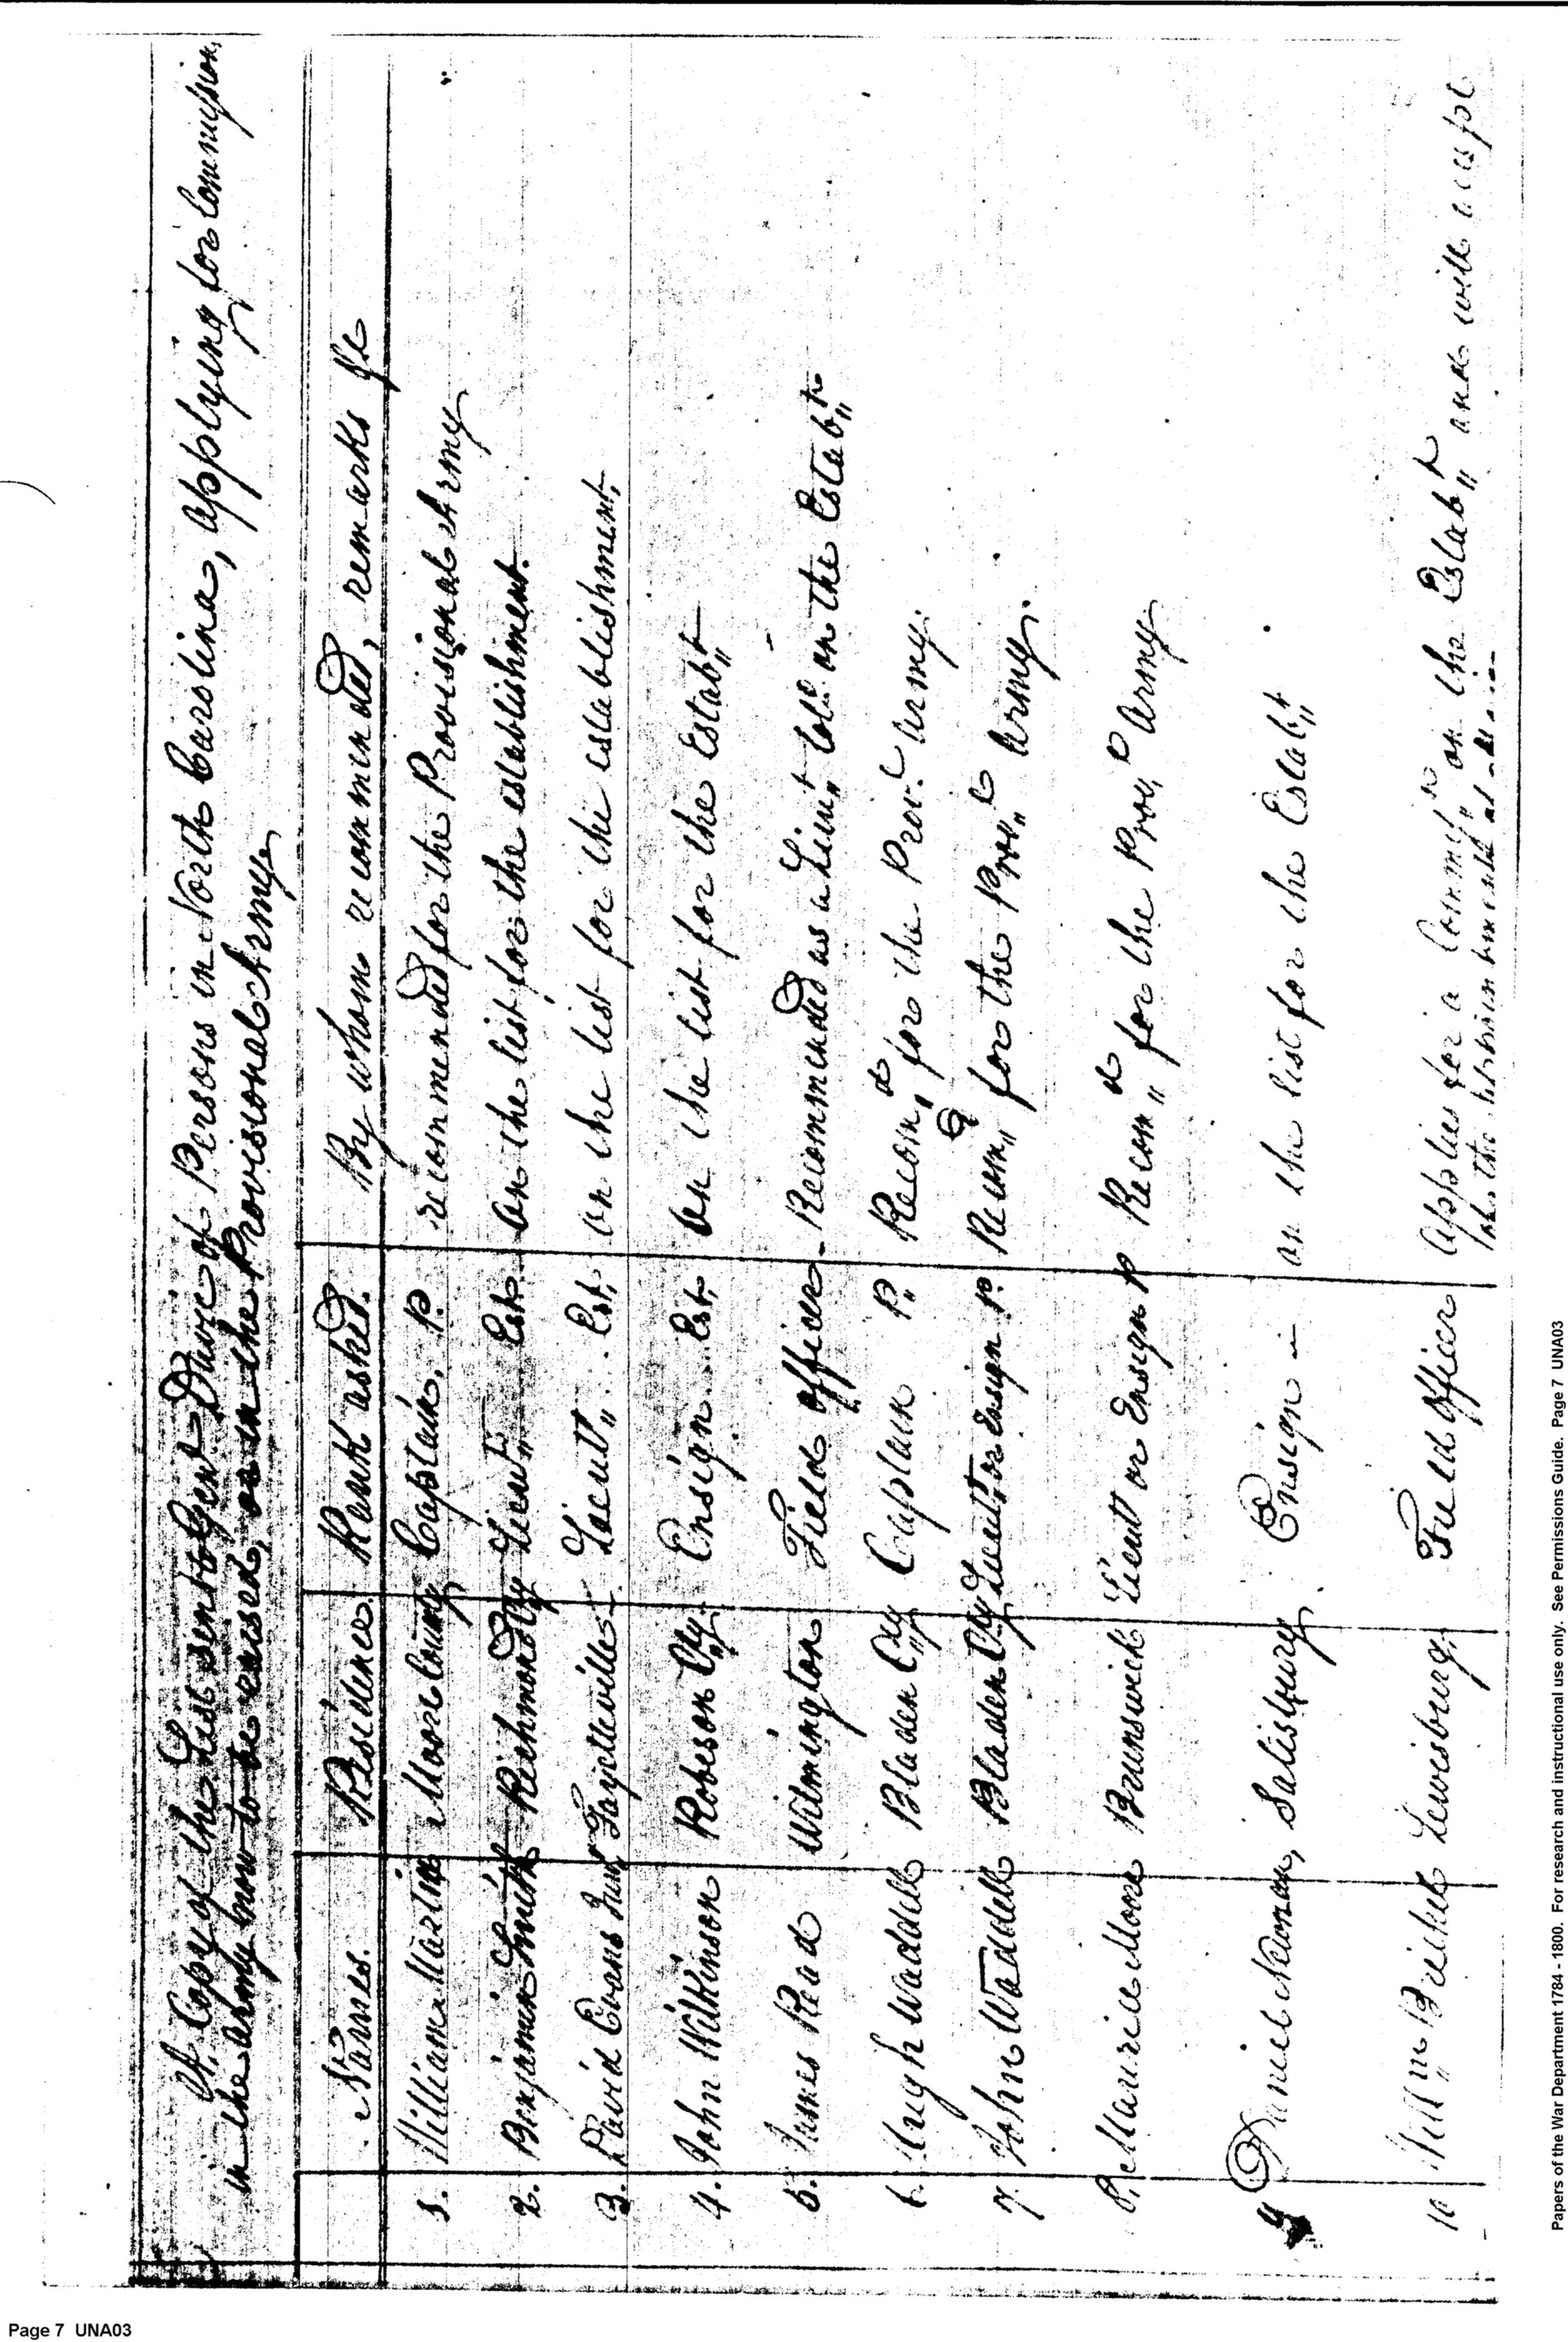 A Copy of the List sent to Genl Davie of Persons in North Carolina, applying for Commission,
in the army now to be raised, or in the Provisional Army
Names. Residence. Rank asked. By whom recommended, remarks &c
1. William Martin Moore County Captain. P. recommended for the Provisional Army
2. Benjamin Smith Richmond Cty Lieut Est. on the list for the establishment.
3. David Evans Junr Fayetteville Lieut Est. on the list for the establishment.
4. John Wilkinson Robeson Cty Ensign Est. on the list for the Establt
5. James Read Wilmington Field officer Recommended as a Lieut Colo on the Establt
6. Hugh Waddell Bladen Cty Captain P. Recomd for the Provl army.
7. John Waddell Bladen Cty Lieut or Ensign P. Recomd for the Provl Army.
8. Maurice Moore Brunswick Lieut or Ensign P Recomd for the Provl Army
9 Daniel Newnan, Salisbury Ensign — on the list for the Establt
10 Willm Bickel Lewisburg. Field officer applies for a Commn on the Establt and will accept
Papers of the War Department 1784 - 1800. For research and instructional use only. See Permissions Guide. Page 7 UNA03
Page 7 UNA03